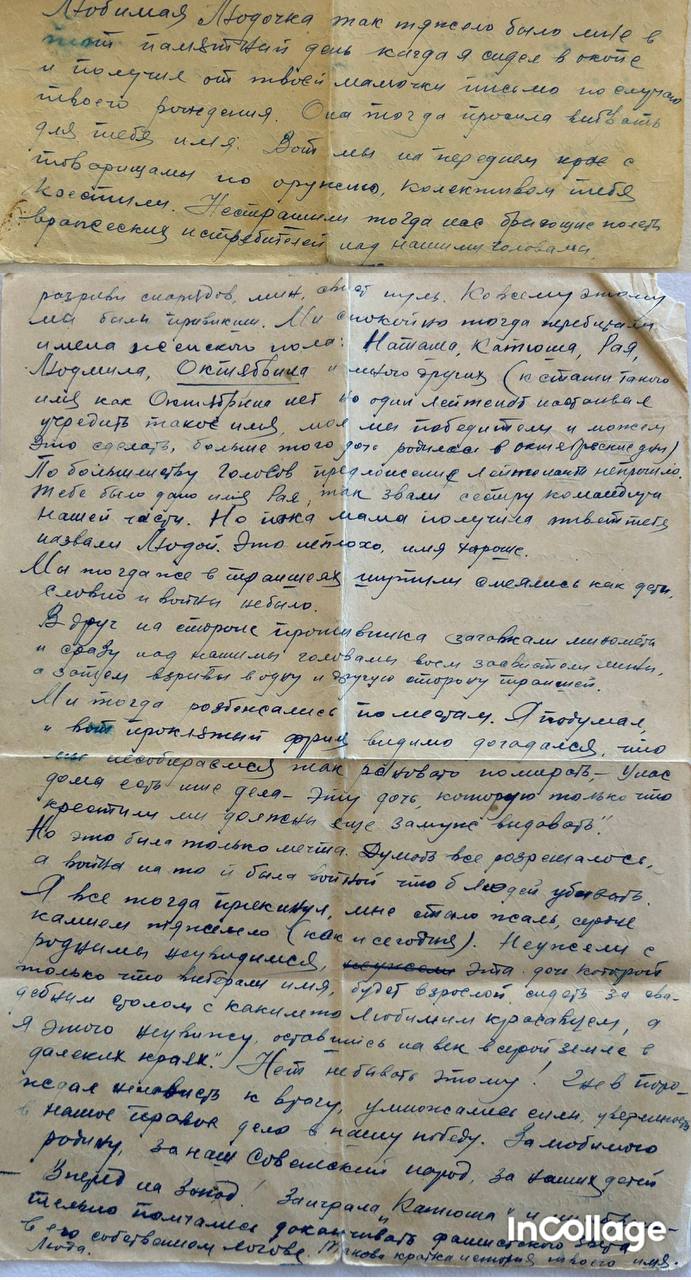 Любимая Людочка так тяжело было мне в
тот памятний день кагда я сидел в окопе
и получил от твоей мамочки письмо по случаю
твоего рождения. Она тогда просила вибрать
для тебя имя. Вот мы на переднем крае с
товарищамы по оружию, колективом тебя
крестили. Нестрашили тогда нас бреющие полеты
вражеских истребителей над нашими головами,
разриви снарядов, мин, свист пуль. Ко всему этому
ми были привикши. Ми спокойно тогда перебирали
имена женского пола: Наташа, Катюша, Рая,
Людмила, Октябрина и много других (кстати такого
имя как Октябрина нет но один лейтенант настаивал
учредить такое имя, мол мы победители и можем
это сделать, больше того дочь родилась в октябрьские дни)
По большинству голосов предложение лейтенанта непрошло.
Тебе было дано имя Рая, так звали сестру командира
нашей части. Но пока мама получила ответ тебя
назвали Людой. Это неплохо, имя хороше.
Ми тогда же в траншеях шутили смеялись как дети,
словно и войни небыло.
Вдруг на стороне противника загавкали миномети
и сразу над нашимы головамы воем засвистели мини,
а затем взриви в одну и другую сторону траншей.
Ми тогда розбежались по местам. Я подумал,
и вот проклятий фриц видимо догадался, что
мы несобираемся так рановато помирать,- Унас
дома есть ище дела - эту дочь, которую только что
крестили ми должни еще замуж видавать".
Но это била только мечта. Думать все розрешалось,-
а война на то й била войной что б людей убивать.
Я все тогда прекинул, мне стало жаль, сердце
камнем тяжелело (как и сегодня). Неужели с
роднимы неувидимся, неужели эта дочь которой
только что виберали имя, будет взрослой сидеть за сва-
дебним столом с какимто любимим красавцем, а
я этого неувижу, оставшись на век в сирой земле в
далеких краях". Нет небивать этому! Гнев поро-
ждал ненависть к врагу, умножались сили, уверенность
в нашое правое дело в нашу победу. За любимого
родину, за наш Советский народ, за наших детей
- Вперед на Запад! Заиграла "Катюша" и
тельно помчались доканчивать фашистского зверя
в его собственном логове. Такова кратка история твоего имя.
Люта.
InCollage